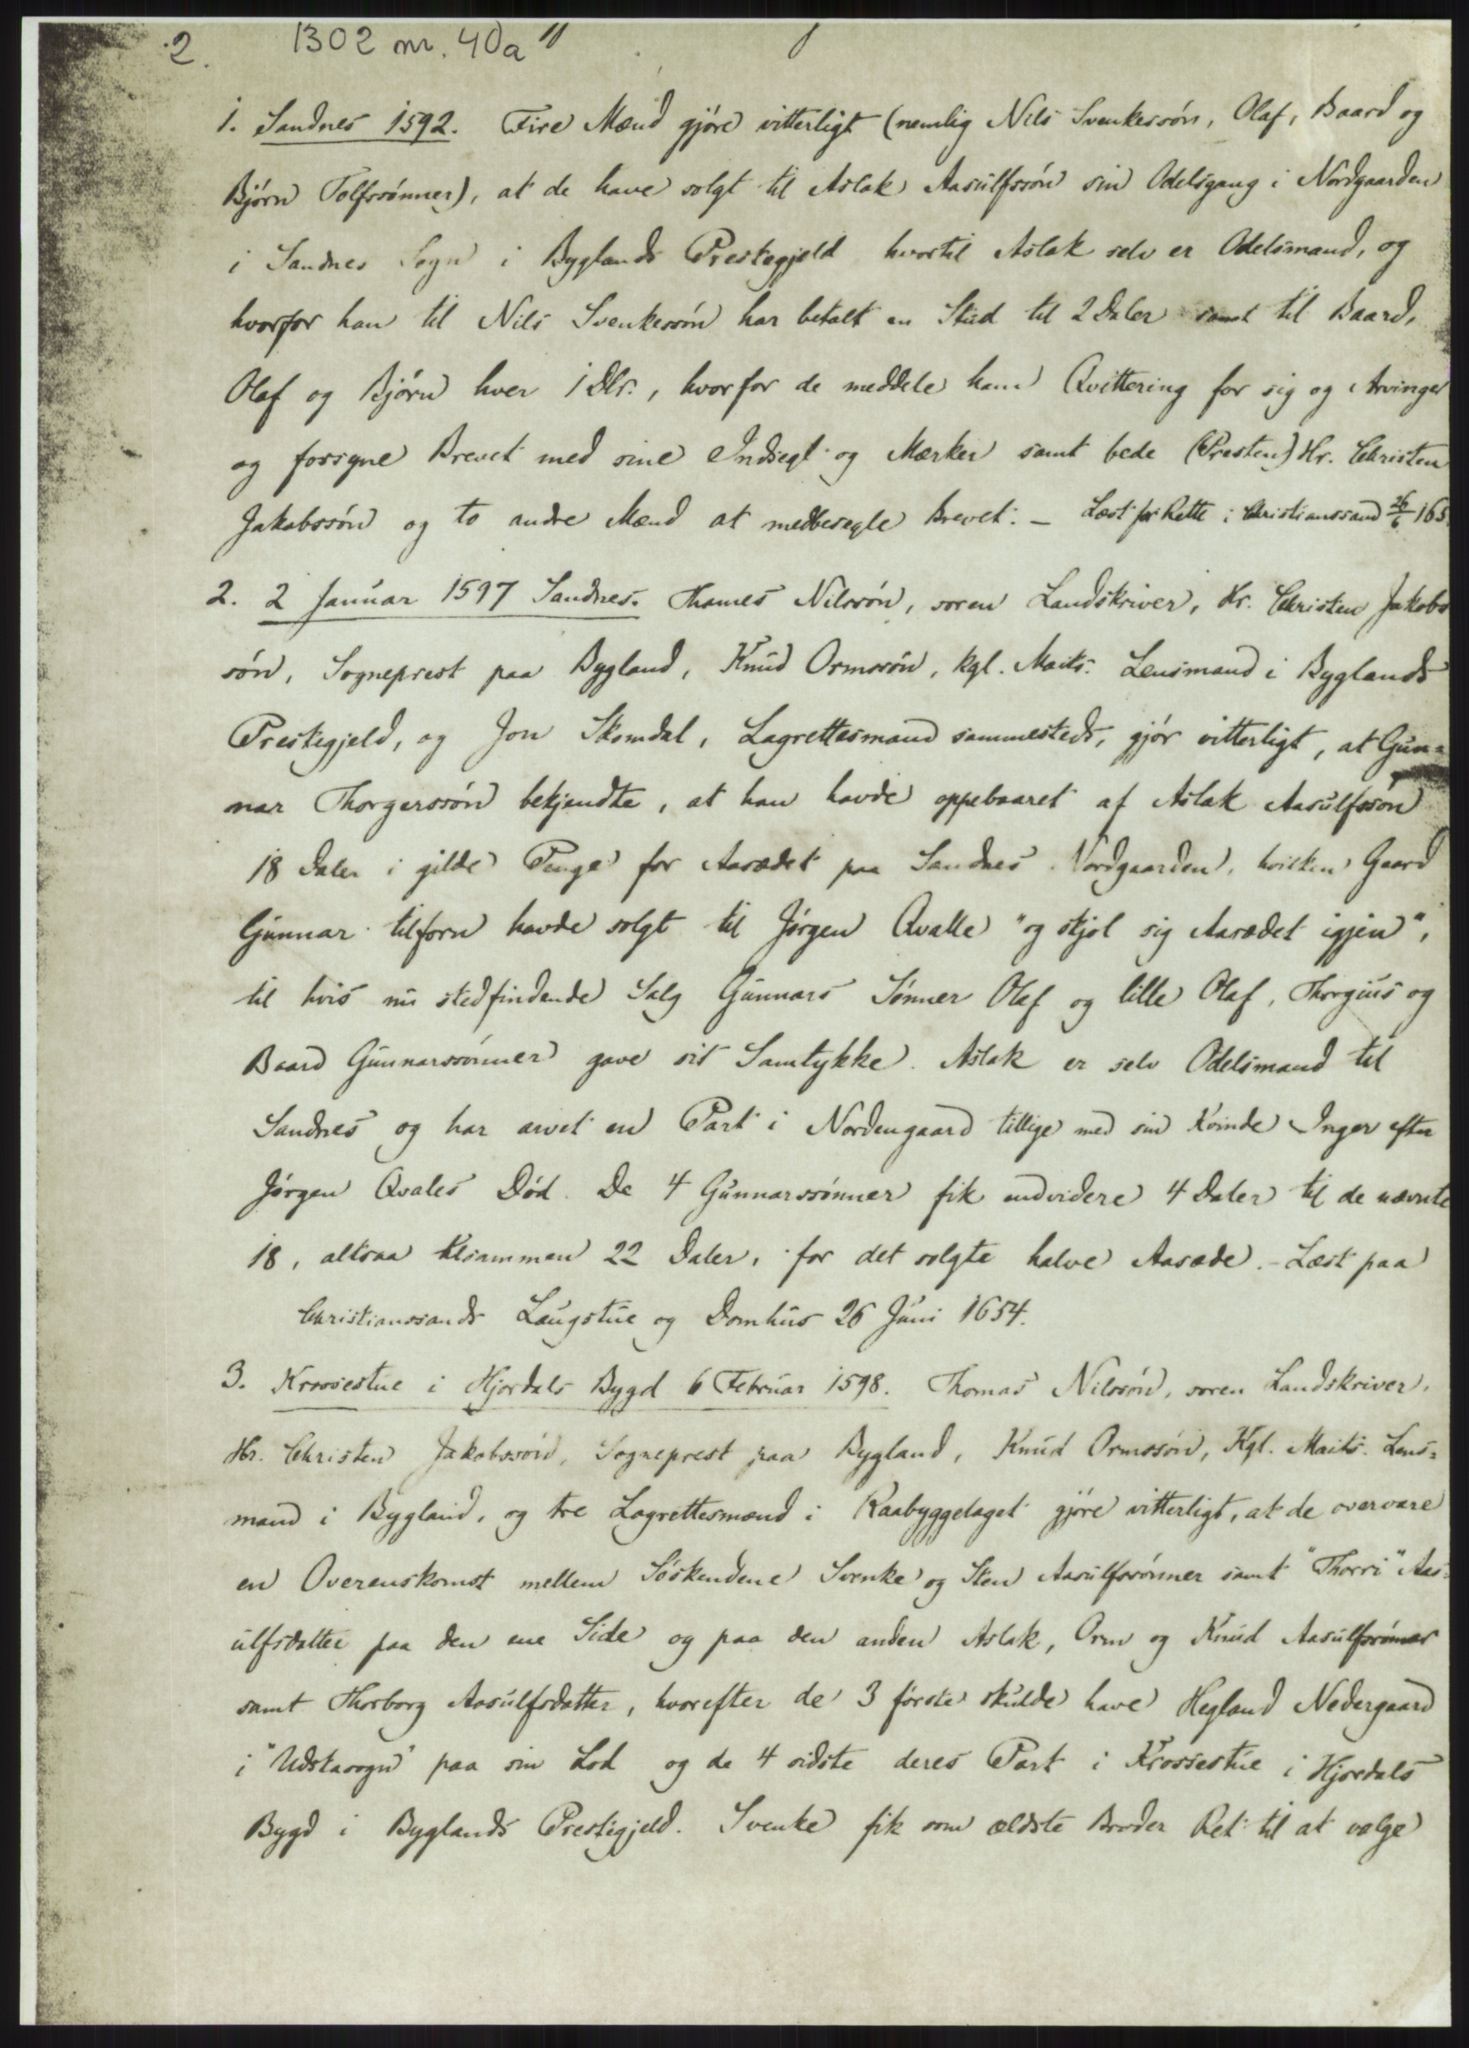 2. 1302 nr. 40a
1. Sandnes 1592. Fire Mænd gjöre vitterligt (nemlig Nils Svenkessön, Olaf, Baard og
Björn Tolfssönner), at de have solgt til Aslak Aasulfssön sin Odelsgang i Nordgaarden
i Sandnes Sogn i Byglands Prestegjeld hvortil Aslak selv er Odelsmand, og
hvorfor han til Nils Svenkessön har betalt en Stud til 2 Daler samt til Baard,
Olaf og Björn hver 1 Dlr., hvorfor de meddele ham Qvittering for sig og Arvinger
og forsyne Brevet med sine Indsegl og Mærker samt bede (Presten) Hr. Christen
Jakobssön og to andre Mænd at medbesegle Brevet. — Læst for Rette i Christianssand 26/6 165
2. 2 Januar 1597 Sandnes. Thomes Nilssön, soren Landskriver, Hr. Christen Jakobs
sön, Sogneprest paa Bygland, Knud Ormssön, kgl. Maits. Lensmand i Byglands
Prestegjeld, og Jon Skomdal, Lagrettesmand sammesteds, gjör vitterligt, at Gun=
nar Thorgerssön bekjendte, at han havde oppebaaret af Aslak Aasulfssön
18 Daler i gilde Penge for Aasædet paa Sandnes Nordgaarden, hvilken Gaard
Gunnar tilforn havde solgt til Jörgen Qvalle "og skjøl sig Aasædet igjen",
til hvis nu stedfindende Salg Gunnars Sönner Olaf og lille Olaf, Thorgius og
Baard Gunnarssönner gave sit Samtykke. Aslak er selv Odelsmand til
Sandnes og har arvet en Part i Nordengaard tillige med sin Kvinde Inger efter
Jörgen Qvales Död. De 4 Gunnarssönner fik endvidere 4 Daler til de nævnte
18, altsaa tilsammen 22 Daler, for det solgte halve Aasæde. — Læst paa
Christianssands Laugstue og Domhus 26 Juni 1654.
3. Krossestue i Hjordals Bygd 6 Februar 1598. Thomas Nilssön, soren Landskriver,
Hr. Christen Jakobssön, Sogneprest paa Bygland, Knud Ormssön, Kgl. Maits. Lens=
mand i Bygland, og tre Lagrettesmænd i Raabyggelaget gjöre vitterligt, at de overvare
en Overenskomst mellem Söskendene Svenke og Sten Aasulfssönner samt "Thorri" Aas=
ulfsdatter paa den ene Side og paa den anden Aslak, Orm og Knud Aasulfssönner
samt Thorborg Aasulfsdatter, hvorefter de 3 förste skulde have Hegland Nedergaard
i "Udstasogn" paa sin Lod og de 4 sidste deres Part i Krossestue i Hjordals
Bygd i Byglands Prestegjeld. Svenke fik som ældste Broder Ret til at vælge